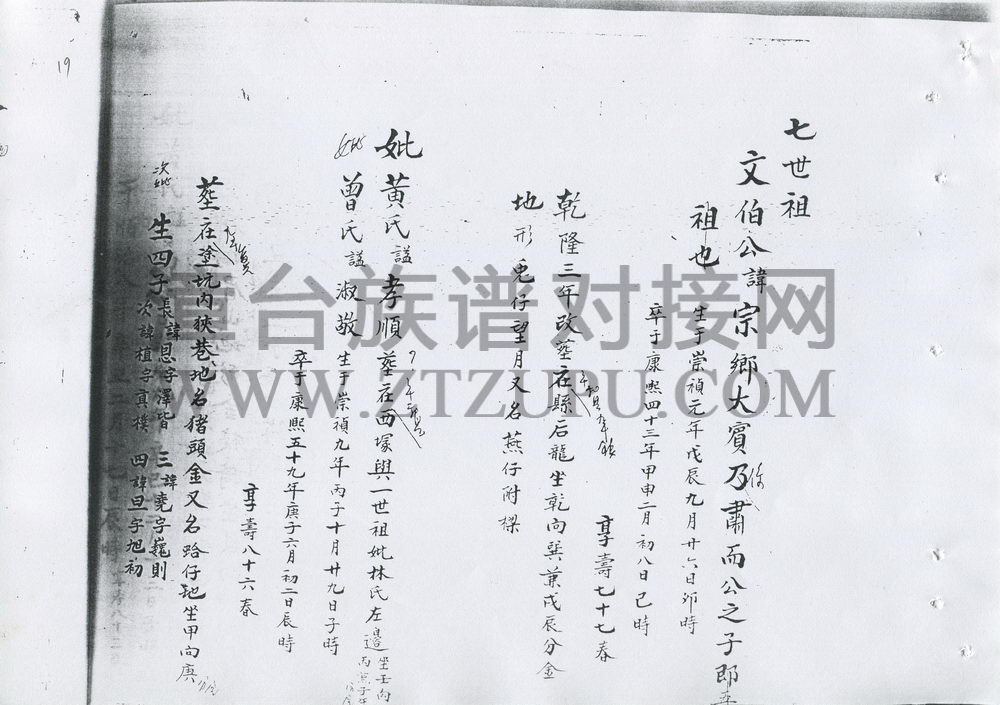 七世祖
文伯公諱宗鄉大賓乃肅而公之子郎
祖也
生于崇禎元年戊辰九月廿六日卯時
卒于康熙四十三年甲申二月初八日巳時
享壽七十七春
乾隆三年改塟在縣后龍坐乾向巽兼戌辰分金
地形兎仔望月又名燕仔附樑
妣黃氏諡孝順塟在西塚與一世祖妣林氏左邊坐壬向丙
妣曾氏諡淑敬
生于崇禎九年丙子十月廿九日子時
卒于康熙五十九年庚子六月初二日辰時
享壽八十六春
塟在塗坑內狹巷地名猪頭金又名路仔地坐甲向庚
次妣
生四子
長諱恩字澤皆 三諱堯字巍則
次諱植字真樸 四諱旦字旭初
19
重台族谱对接网
WWW.ZTZUPU.COM